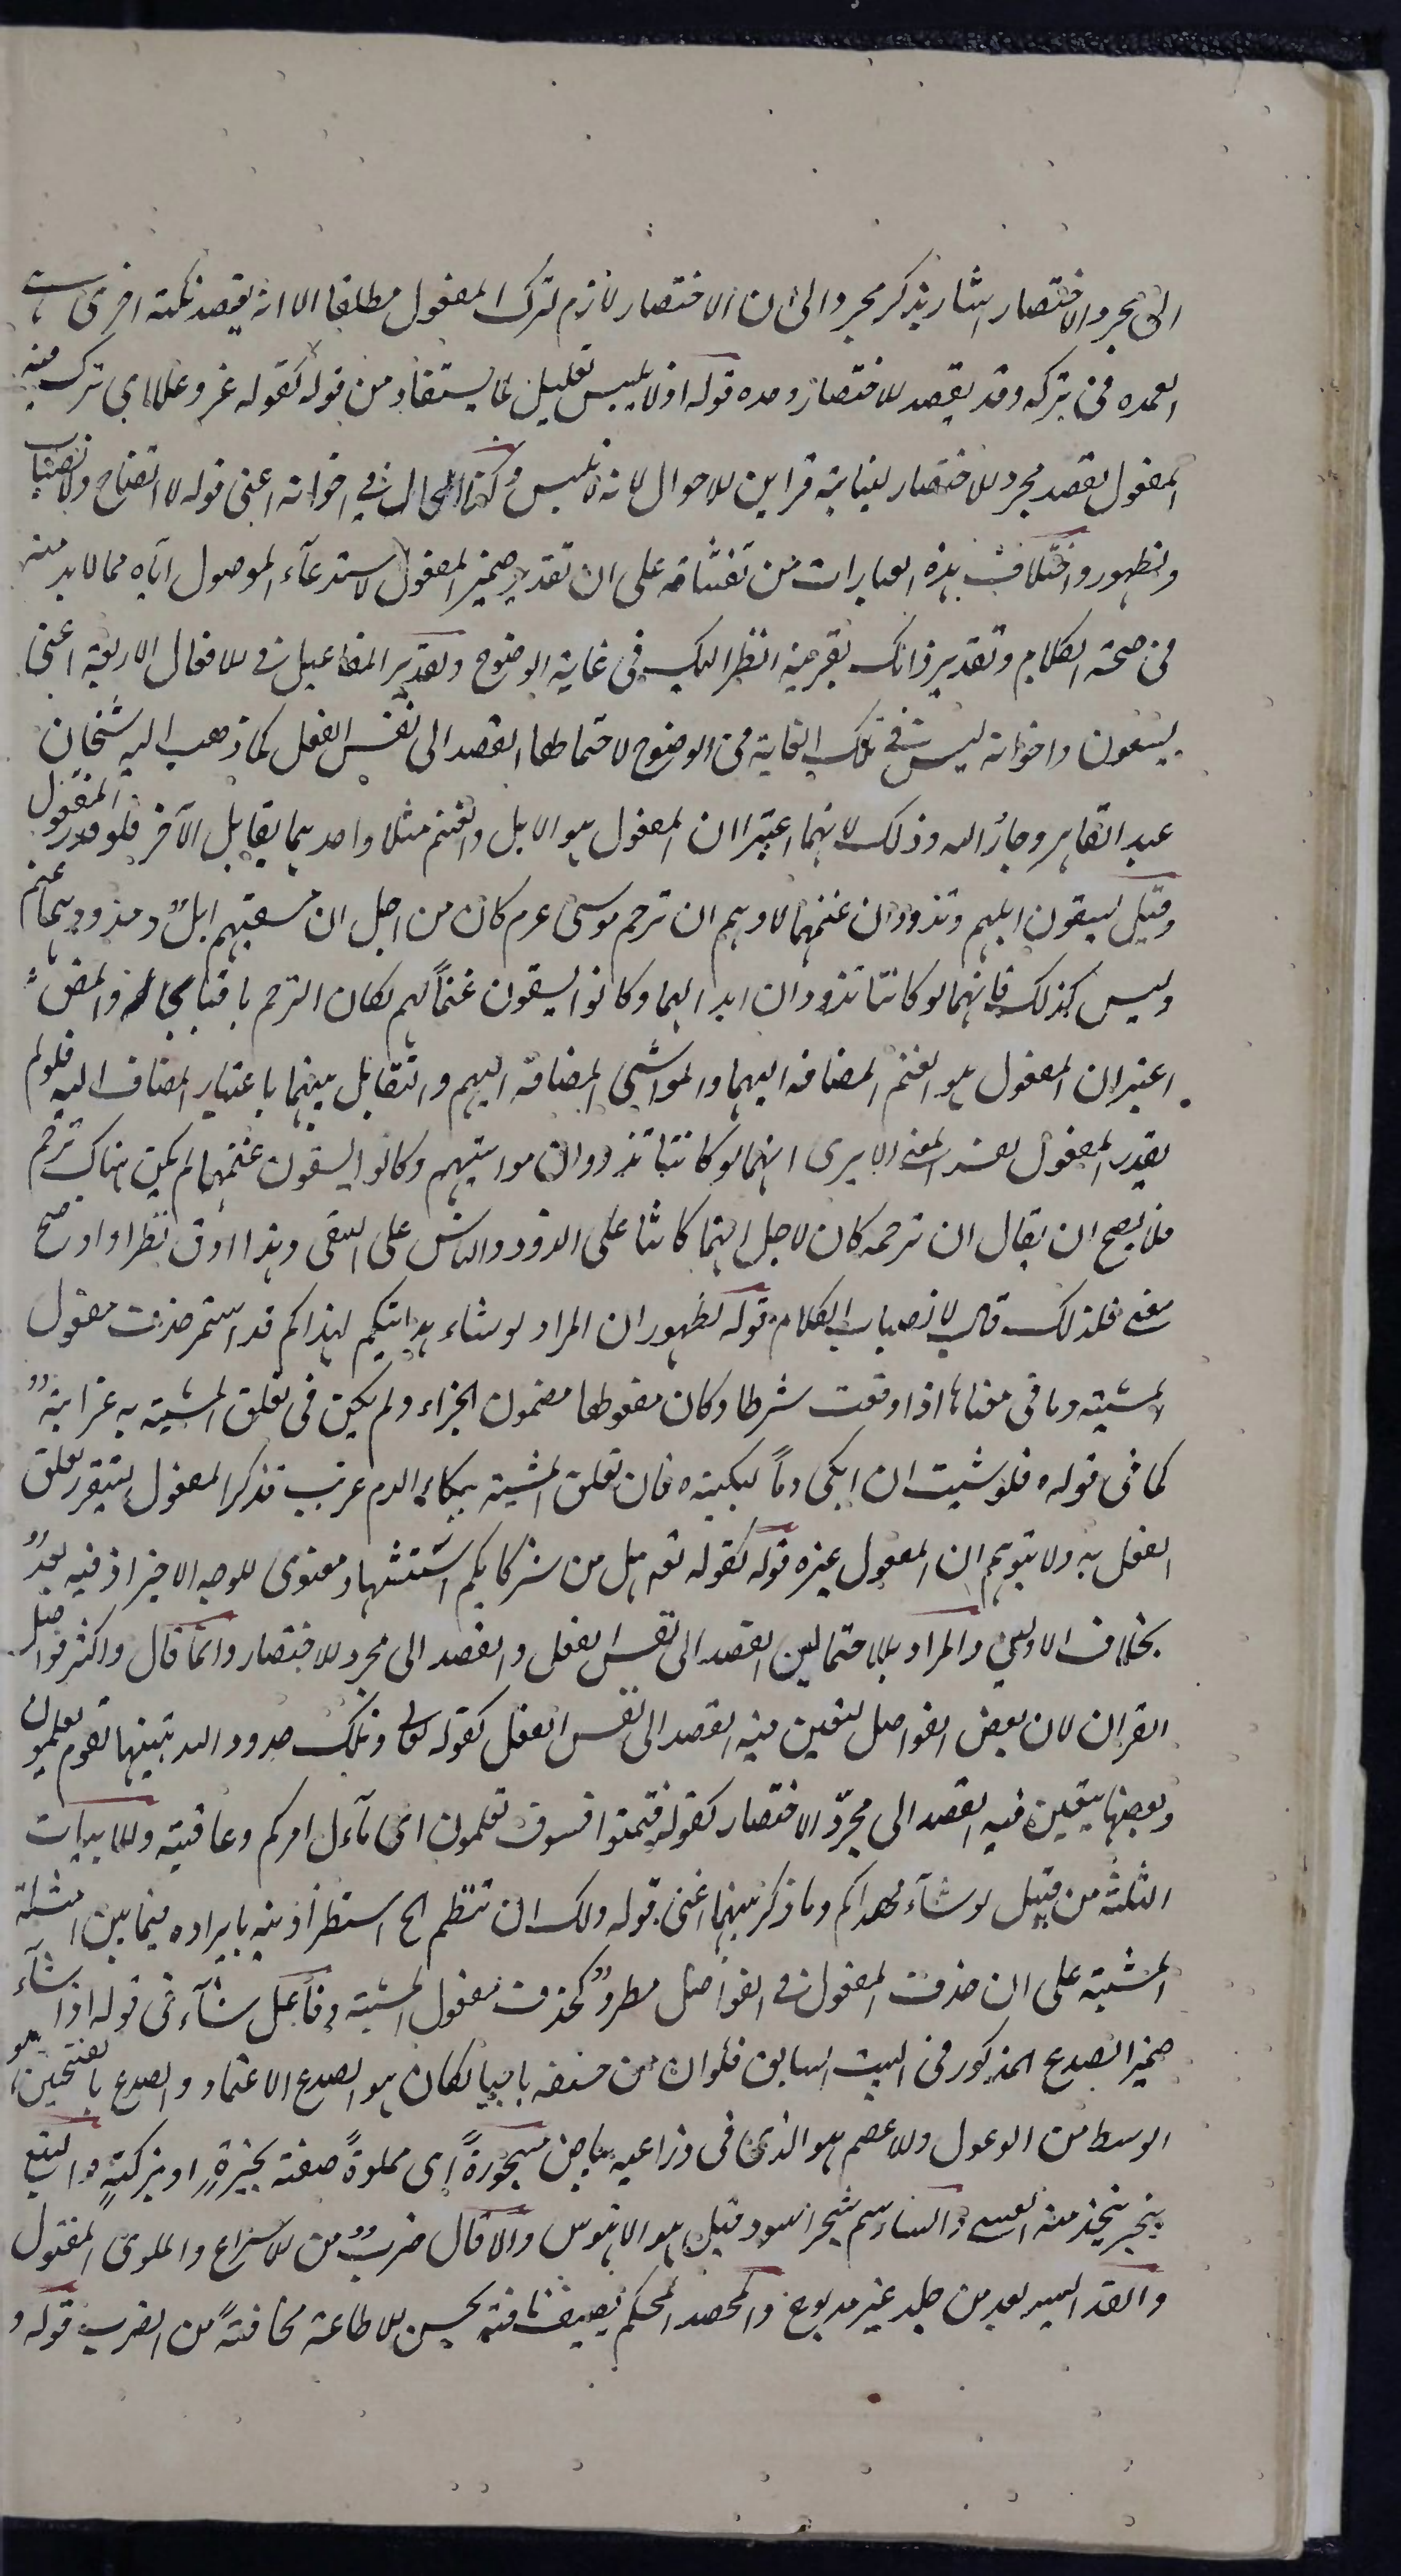 الى مجرد الاختصار اشار بذكر مجرد الى ان الاختصار لازم لترك المفعول مطلقا الا انه يقصد نكتة اخرى هى
العمدة فى تركه وقد يقصد الاختصار وحده قوله اذ لا يلبس تعليل لما يستفاد من قوله كقوله عز وعلا اى ترك منه
المفعول بقصد مجرد الاختصار لنيابة قراين الاحوال لانه لا يلبس وكذا الحال فى اخواته اعنى قوله لا اتضاح ولا نصباب
ولظهور واختلاف هذه العبارات من تفننا فه على ان تقدير ضمير المفعول لاستدعاء الموصول اياه مما لا بد منه
فى صحة الكلام وتقدير ذاتك بقرينة انظر اليك فى غاية الوضوح وتقدير المفاعيل فى الافعال الاربعة اعنى
يسقون واخواته ليس فى تلك الغاية من الوضوح لاحتمالها القصد الى نفس الفعل كما ذهب اليه الشيخان
عبد القاهر وجار الله وذلك لانهما اعتبرا ان المفعول هو الابل والغنم مثلا واحدهما يقابل الآخر فلو قدر المفعول
وقيل يسقون ابلهم وتذودان غنمهما لاوهم ان ترحم موسى عم كان من اجل ان مسقيهم ابل ومذودهما غنم
وليس كذلك فانهما لو كانتا تذودان ابلا لهما وكانوا يسقون غنماً لهم لكان الترحم باقيا بحاله والمص
اعتبر ان المفعول هو الغنم المضافة اليهما والمواشى المضافة اليهم والتقابل بينهما باعتبار المضاف اليه فلو لم
يقدر المفعول لفسد المعنى الا يرى انهما لو كانتا تذودان مواشيهم وكانوا يسقون غنمهما لم يكن هناك ترحم
فلا يصح ان يقال ان ترحمه كان لاجل انهما كانتا على الذود والناس على السقى وهذا ادق نظرا واوضح
معنى فلذلك قال لانصباب الكلام قوله لظهور ان المراد لو شاء هدايتكم لهداكم قد استمر حذف مفعول
المشية وما فى معناها اذا وقعت شرطا وكان مفعولها مضمون الجزاء ولم يكن فى تعلق المشية به غرابة
كما فى قوله فلو شئت ان ابكى دماً لبكيته فان تعلق المشية ببكاء الدم غريب فذكر المفعول ليتقرر تعلق
الفعل به ولا يتوهم ان المفعول غيره قوله كقوله تعه هل من شركايكم استشهاد معنوى للوجه الاخير اذ فيه بعد
بخلاف الاولين والمراد بالاحتمالين القصد الى نفس الفعل والقصد الى مجرد الاختصار وانما قال واكثر فواصل
القران لان بعض الفواصل لتعين فيه القصد الى نفس الفعل كقوله تعالى وتلك حدود الله يبينها لقوم يعلمون
وبعضها يتعين فيه القصد الى مجرّد الاختصار كقوله فتمتعوا فسوف تعلمون اى مآءل امركم وعاقبته والابيات
الثلثة من قبيل لو شاء لهداكم وما ذكر بينهما اعنى قوله ولك ان تنظم الح استطراد نبه بايراده فيما بين امثلة
المشية على ان حذف المفعول فى الفواصل مطرد كحذف مفعول المشية وفاعل شاء فى قوله اذا شاء
ضمير الصدع المذكور فى البيت السابق فلو ان من حتفه ناجيا لكان هو الصدع الاعتماد والصدع بالفتحين هو
الوسط من الوعول والاعصم هو الذى فى ذراعيه بياض مسجورةً اى مملوةً صفة بحيرةٍ او بركةٍ والنبع
شجر يتخذ منه القسى والساسم شجر اسود قيل هو الابنوس والا قال ضرب من الاسراع والملوى المفتول
والقد السير يعد من جلد غير مدبوغ والمحصد المحكم يصف ناقته بحسن الاطاعة مخافةً من الضرب قوله و